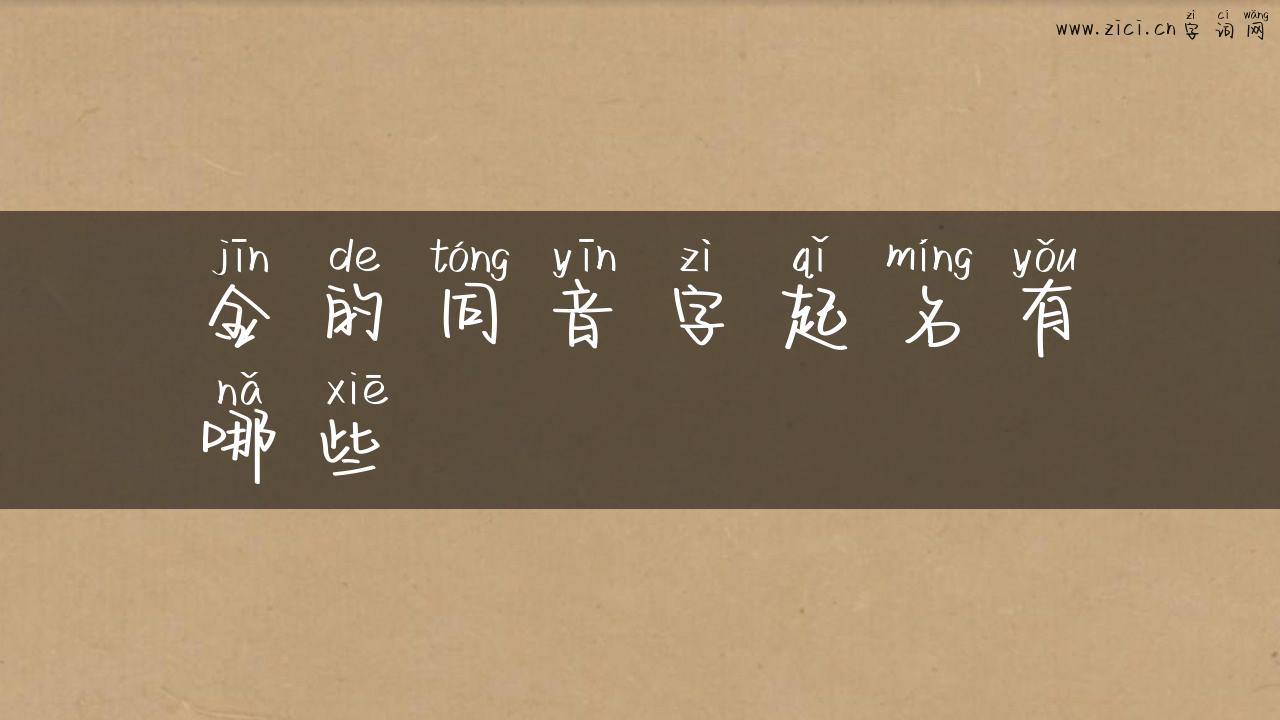 zì cí wǎng
www.zici.cn 字词网
jīn de tóng yīn zì qǐ míng yǒu
金的同音字起名有
nǎ xiē
哪些